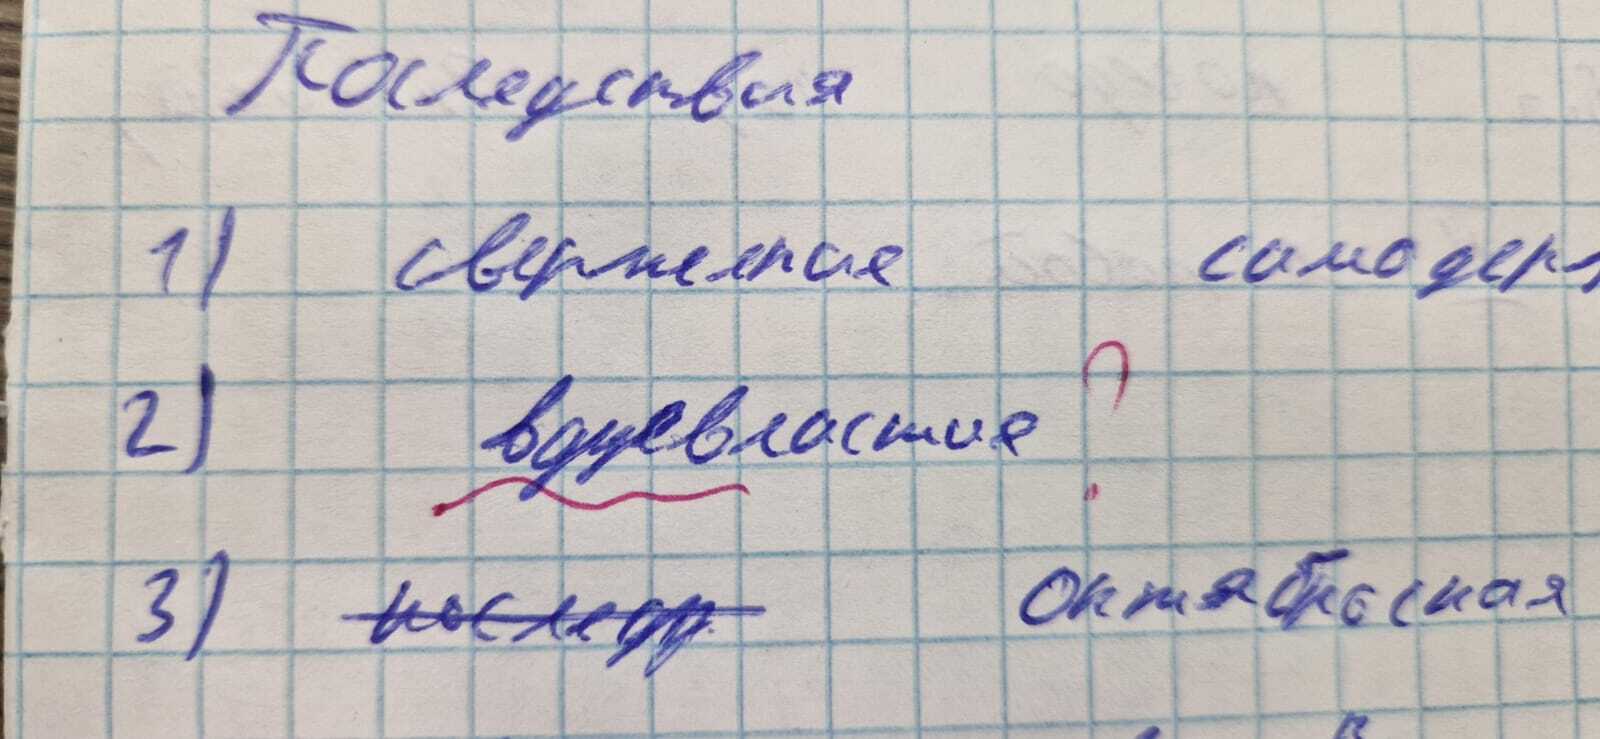 Последствия
1) свержение самодерж
2) вдуевластие ?
3) ~~последр~~ октябрьская